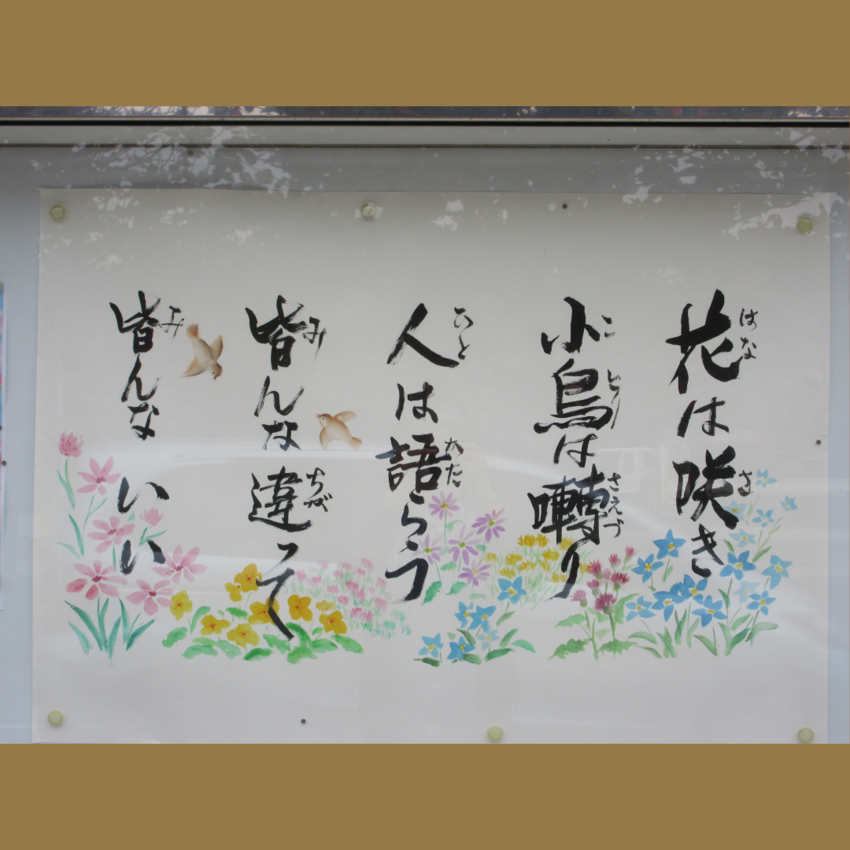 花は咲き
小鳥は囀り
人は語らう
皆んな違って
皆んないい
はな
さ
ことり
さえづ
ひと
かた
み
ちが
み